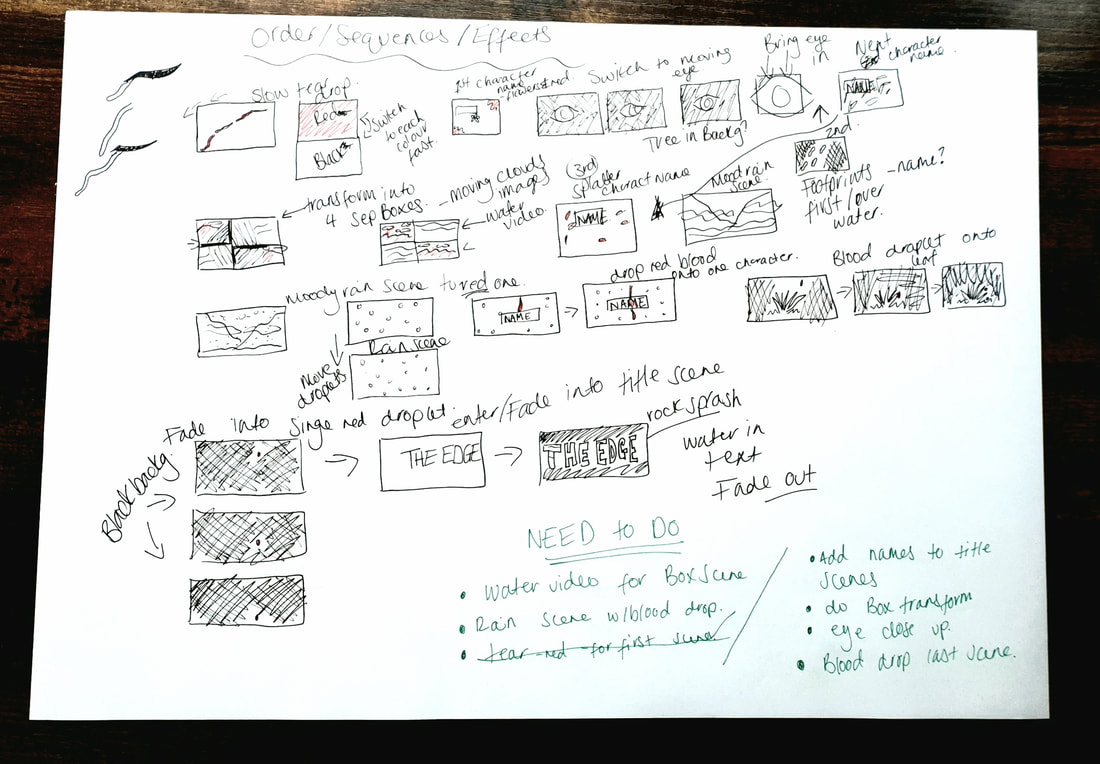 Order/Sequences/Effects
Slow tear
drop
Red
Black
Switch
to each
colour
fast.
1st character
name
-flowers+red
Switch to moving
eye
Tree in Backg?
Bring eye
in
Next
character
name.
NAME
2nd.
Footprints -name?
first/over
water.
transform into
4 sep boxes.
-moving clouds
images
water
video.
(3rd)
Splatter
charact name
NAME
Moodrain
scene
Moody rain scene to red one.
Rain scene
Move
droplets
NAME
drop red blood
onto one character.
NAME
Blood droplet onto
leaf
Fade into singe red droplet.
Black backg.
enter/Fade into title scene
THE EDGE
THE EDGE
rock splash
water in
text
Fade out
NEED TO DO
• Water video for Box scene
• Rain scene w/blood drop.
• tear red for first scene
• Add names to title
scenes
• do Box transform
• eye close up.
• Blood drop last scene.